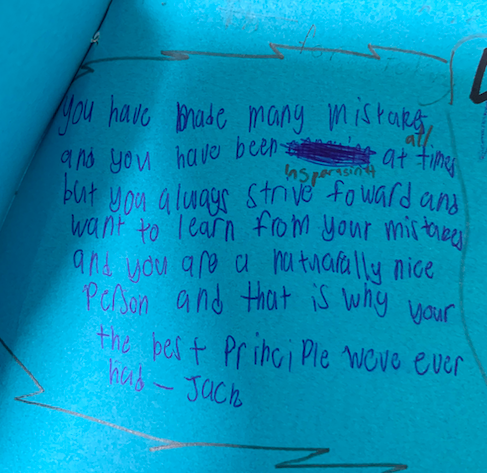 you have made many mistakes
and you have been at all times
insperasinth
but you always strive foward and
want to learn from your mistakes
and you are a natuarally nice
Person and that is why your
the best Principle weve ever
had - Jack